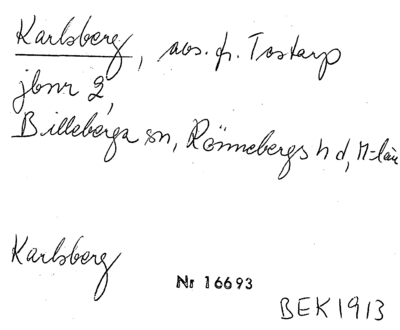 Karlsberg, avs. fr. Tostarp
jbnr 2,
Billeberga sn, Rönnebergs hd, M-län
Karlsberg
Nr 16693
BEK 1913